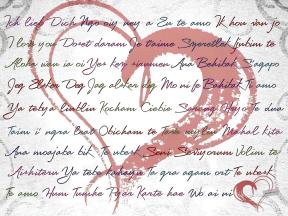 Ich lieb Dich Ngo oiy ney a Eu te amo Ik hou van jo
I love you Doset daram Je taime Szeretlek Ljubim te
Aloha wau ia oi Yes kez siroumen Ana Behibak Sagapo
Jeg Elsker Deg Jag alskar dig Mo ni fe Bahibak Ti amo
Ya tebya liubliu Kocham Ciebie Saranghe Te dua
Taim i ngra leat Obicham te Mahal kita
Ana moajaba bik Te iubesk Seni Seviyorum Volim te
Aishiteru Ya tebe kahayu Ta gra agam ort Te iubesk
Te amo Hum Tumhe Pyar Karte hae Wo ai ni